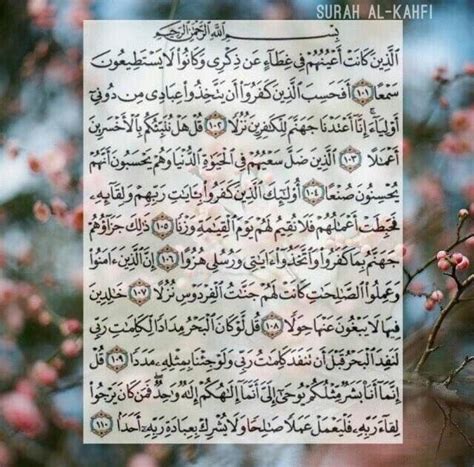 SURAH AL-KAHFI
بِسْمِ اللَّهِ الرَّحْمَٰنِ الرَّحِيمِ
الَّذِينَ كَانَتْ أَعْيُنُهُمْ فِي غِطَاءٍ عَن ذِكْرِي وَكَانُوا لَا يَسْتَطِيعُونَ
سَمْعًا ١٠١ أَفَحَسِبَ الَّذِينَ كَفَرُوا أَن يَتَّخِذُوا عِبَادِي مِن دُونِي
أَوْلِيَاءَ إِنَّا أَعْتَدْنَا جَهَنَّمَ لِلْكَافِرِينَ نُزُلًا ١٠٢ قُلْ هَلْ نُنَبِّئُكُم بِالْأَخْسَرِينَ
أَعْمَالًا ١٠٣ الَّذِينَ ضَلَّ سَعْيُهُمْ فِي الْحَيَاةِ الدُّنْيَا وَهُمْ يَحْسَبُونَ أَنَّهُمْ
يُحْسِنُونَ صُنْعًا ١٠٤ أُولَٰئِكَ الَّذِينَ كَفَرُوا بِآيَاتِ رَبِّهِمْ وَلِقَائِهِ
فَحَبِطَتْ أَعْمَالُهُمْ فَلَا نُقِيمُ لَهُمْ يَوْمَ الْقِيَامَةِ وَزْنًا ١٠٥ ذَٰلِكَ جَزَاؤُهُمْ
جَهَنَّمُ بِمَا كَفَرُوا وَاتَّخَذُوا آيَاتِي وَرُسُلِي هُزُوًا ١٠٦ إِنَّ الَّذِينَ آمَنُوا
وَعَمِلُوا الصَّالِحَاتِ كَانَتْ لَهُمْ جَنَّاتُ الْفِرْدَوْسِ نُزُلًا ١٠٧ خَالِدِينَ
فِيهَا لَا يَبْغُونَ عَنْهَا حِوَلًا ١٠٨ قُل لَّوْ كَانَ الْبَحْرُ مِدَادًا لِّكَلِمَاتِ رَبِّي
لَنَفِدَ الْبَحْرُ قَبْلَ أَن تَنفَدَ كَلِمَاتُ رَبِّي وَلَوْ جِئْنَا بِمِثْلِهِ مَدَدًا ١٠٩ قُلْ
إِنَّمَا أَنَا بَشَرٌ مِّثْلُكُمْ يُوحَىٰ إِلَيَّ أَنَّمَا إِلَٰهُكُمْ إِلَٰهٌ وَاحِدٌ فَمَن كَانَ يَرْجُوا
لِقَاءَ رَبِّهِ فَلْيَعْمَلْ عَمَلًا صَالِحًا وَلَا يُشْرِكْ بِعِبَادَةِ رَبِّهِ أَحَدًا ١١٠